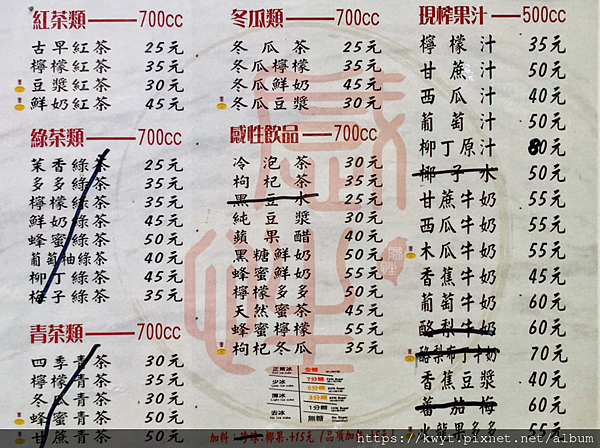 紅茶類——700cc
古早紅茶 25元
檸檬紅茶 35元
豆漿紅茶 30元
鮮奶紅茶 45元
綠茶類——700cc
茉香綠茶 25元
多多綠茶 35元
檸檬綠茶 35元
鮮奶綠茶 45元
蜂蜜綠茶 50元
葡萄柚綠茶 40元
柳丁綠茶 45元
梅子綠茶 35元
青茶類——700cc
四季青茶 30元
檸檬青茶 35元
冬瓜青茶 30元
蜂蜜青茶 50元
甘蔗青茶 50元
冬瓜類——700cc
冬瓜茶 25元
冬瓜檸檬 35元
冬瓜鮮奶 45元
冬瓜豆漿 30元
感性飲品——700cc
冷泡茶 30元
枸杞茶 35元
黑豆水 25元
純豆漿 30元
蘋果醋 40元
黑糖鮮奶 50元
蜂蜜鮮奶 55元
檸檬多多 50元
天然蜂蜜茶 45元
蜂蜜檸檬 55元
枸杞冬瓜 35元
正常冰 全糖
少冰 7分糖
5分糖
薄冰 3分糖
1分糖
去冰 無糖
加料：珍珠.椰果.+15元
現榨果汁——500cc
檸檬汁 35元
甘蔗汁 50元
西瓜汁 40元
葡萄汁 50元
柳丁原汁 80元
椰子水 50元
甘蔗牛奶 55元
西瓜牛奶 55元
木瓜牛奶 55元
香蕉牛奶 45元
葡萄牛奶 60元
酪梨牛奶 60元
酪梨布丁牛奶 70元
香蕉豆漿 40元
蕃茄梅 60元
火龍果多多 55元
https://kwyt1.pixnet.net/album